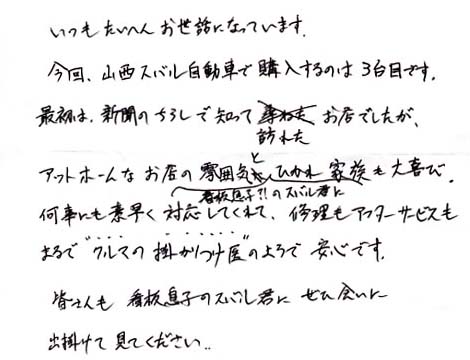 いつもたいへんお世話になっています。
今回、山西スバル自動車で購入するのは3台目です。
最初は、新聞のちらしで知って訪れたお店でしたが、
アットホームなお店の雰囲気と看板息子?!のスバル君にひかれ家族も大喜び。
何事にも素早く対応してくれて、修理もアフターサービスも
まるで"クルマの掛かりつけ医"のようで安心です。
皆さんも看板息子のスバル君にぜひ会いに
出掛けて見てください..